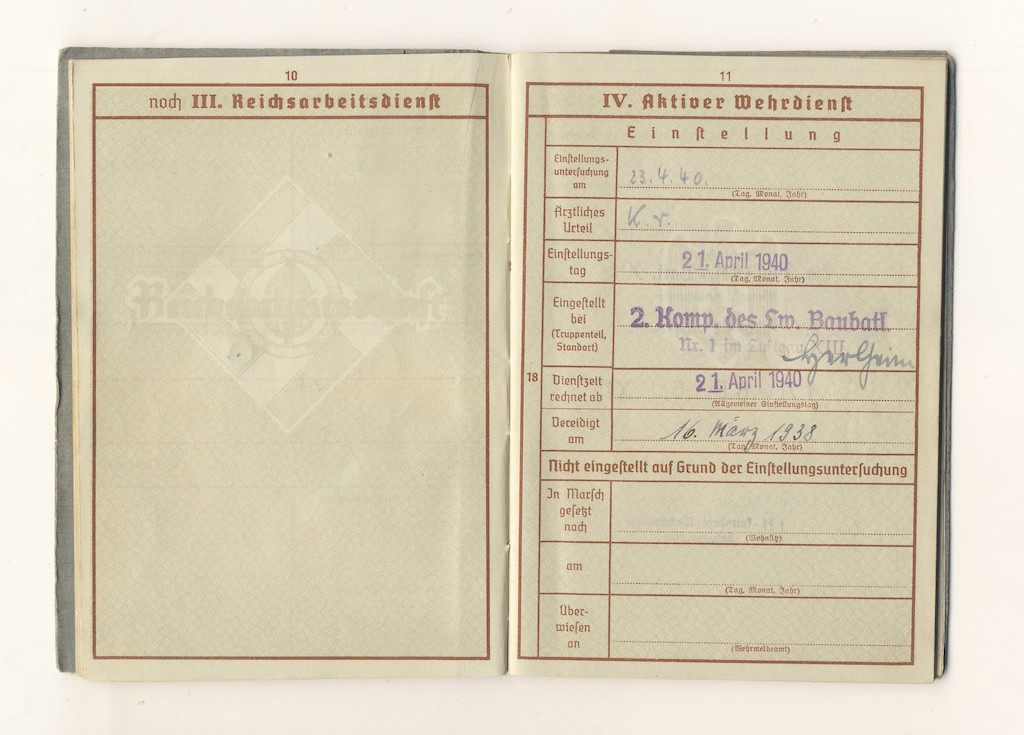 10
noch III. Reichsarbeitsdienst
11
IV. Aktiver Wehrdienst
Einstellung
Einstellungs-
untersuchung
am
23.4.40.
(Tag, Monat, Jahr)
Ärztliches
Urteil
K. v.
Einstellungs-
tag
21. April 1940
(Tag, Monat, Jahr)
Eingestellt
bei
(Truppenteil,
Standort)
2. Komp. des Lw. Baubatl.
Nr. 1 im Luftgau XIII
18
Dienstzeit
rechnet ab
21. April 1940
(Allgemeiner Einstellungstag)
Vereidigt
am
16. März 1938
(Tag, Monat, Jahr)
Nicht eingestellt auf Grund der Einstellungsuntersuchung
In Marsch
gesetzt
nach
(Wohnsitz)
am
(Tag, Monat, Jahr)
Über-
wiesen
an
(Wehrmeldeamt)